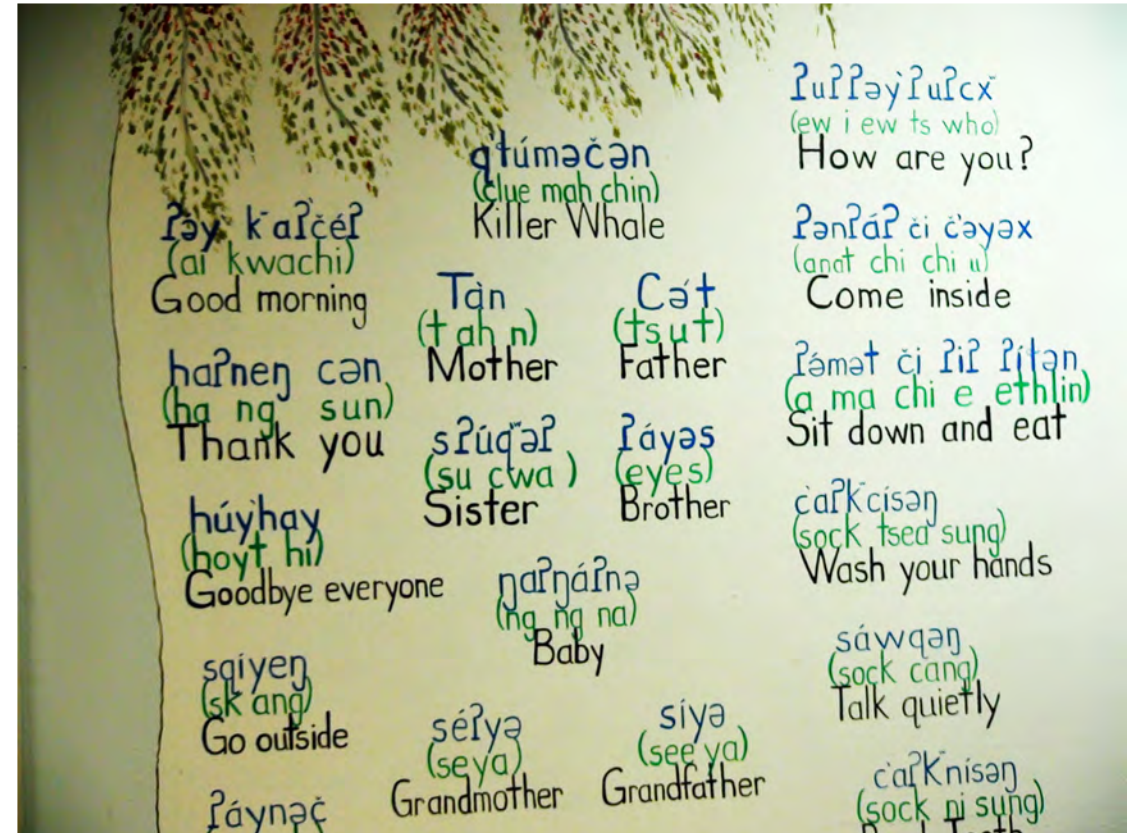 ʔəy̓ kʷaʔčéʔ
(ai kwachi)
Good morning
haʔneŋ cən
(ha ng sun)
Thank you
húy̓hay
(hoyt hi)
Goodbye everyone
sqíyeŋ
(sk ang)
Go outside
ʔáynəč
q̓ɬúməčən
(clue mah chin)
Killer Whale
Tàn
(t ah n)
Mother
Cə́t
(ts u t)
Father
sʔúq̓ʷəʔ
(su cwa)
Sister
ʔáyəs
(eyes)
Brother
ŋaʔŋáʔnə
(ng ng na)
Baby
séʔyə
(seya)
Grandmother
síyə
(see ya)
Grandfather
ʔuʔʔəy̓ʔuʔcxʷ
(ew i ew ts who)
How are you?
ʔənʔáʔ či č̓əyəxʷ
(anat chi chi u)
Come inside
ʔámət či ʔiʔ ʔíɬən
(a ma chi e ethlin)
Sit down and eat
c̓aʔkʷcísəŋ
(sock tsea sung)
Wash your hands
sáwqəŋ
(sock cang)
Talk quietly
c̓aʔkʷnísəŋ
(sock ni sung)